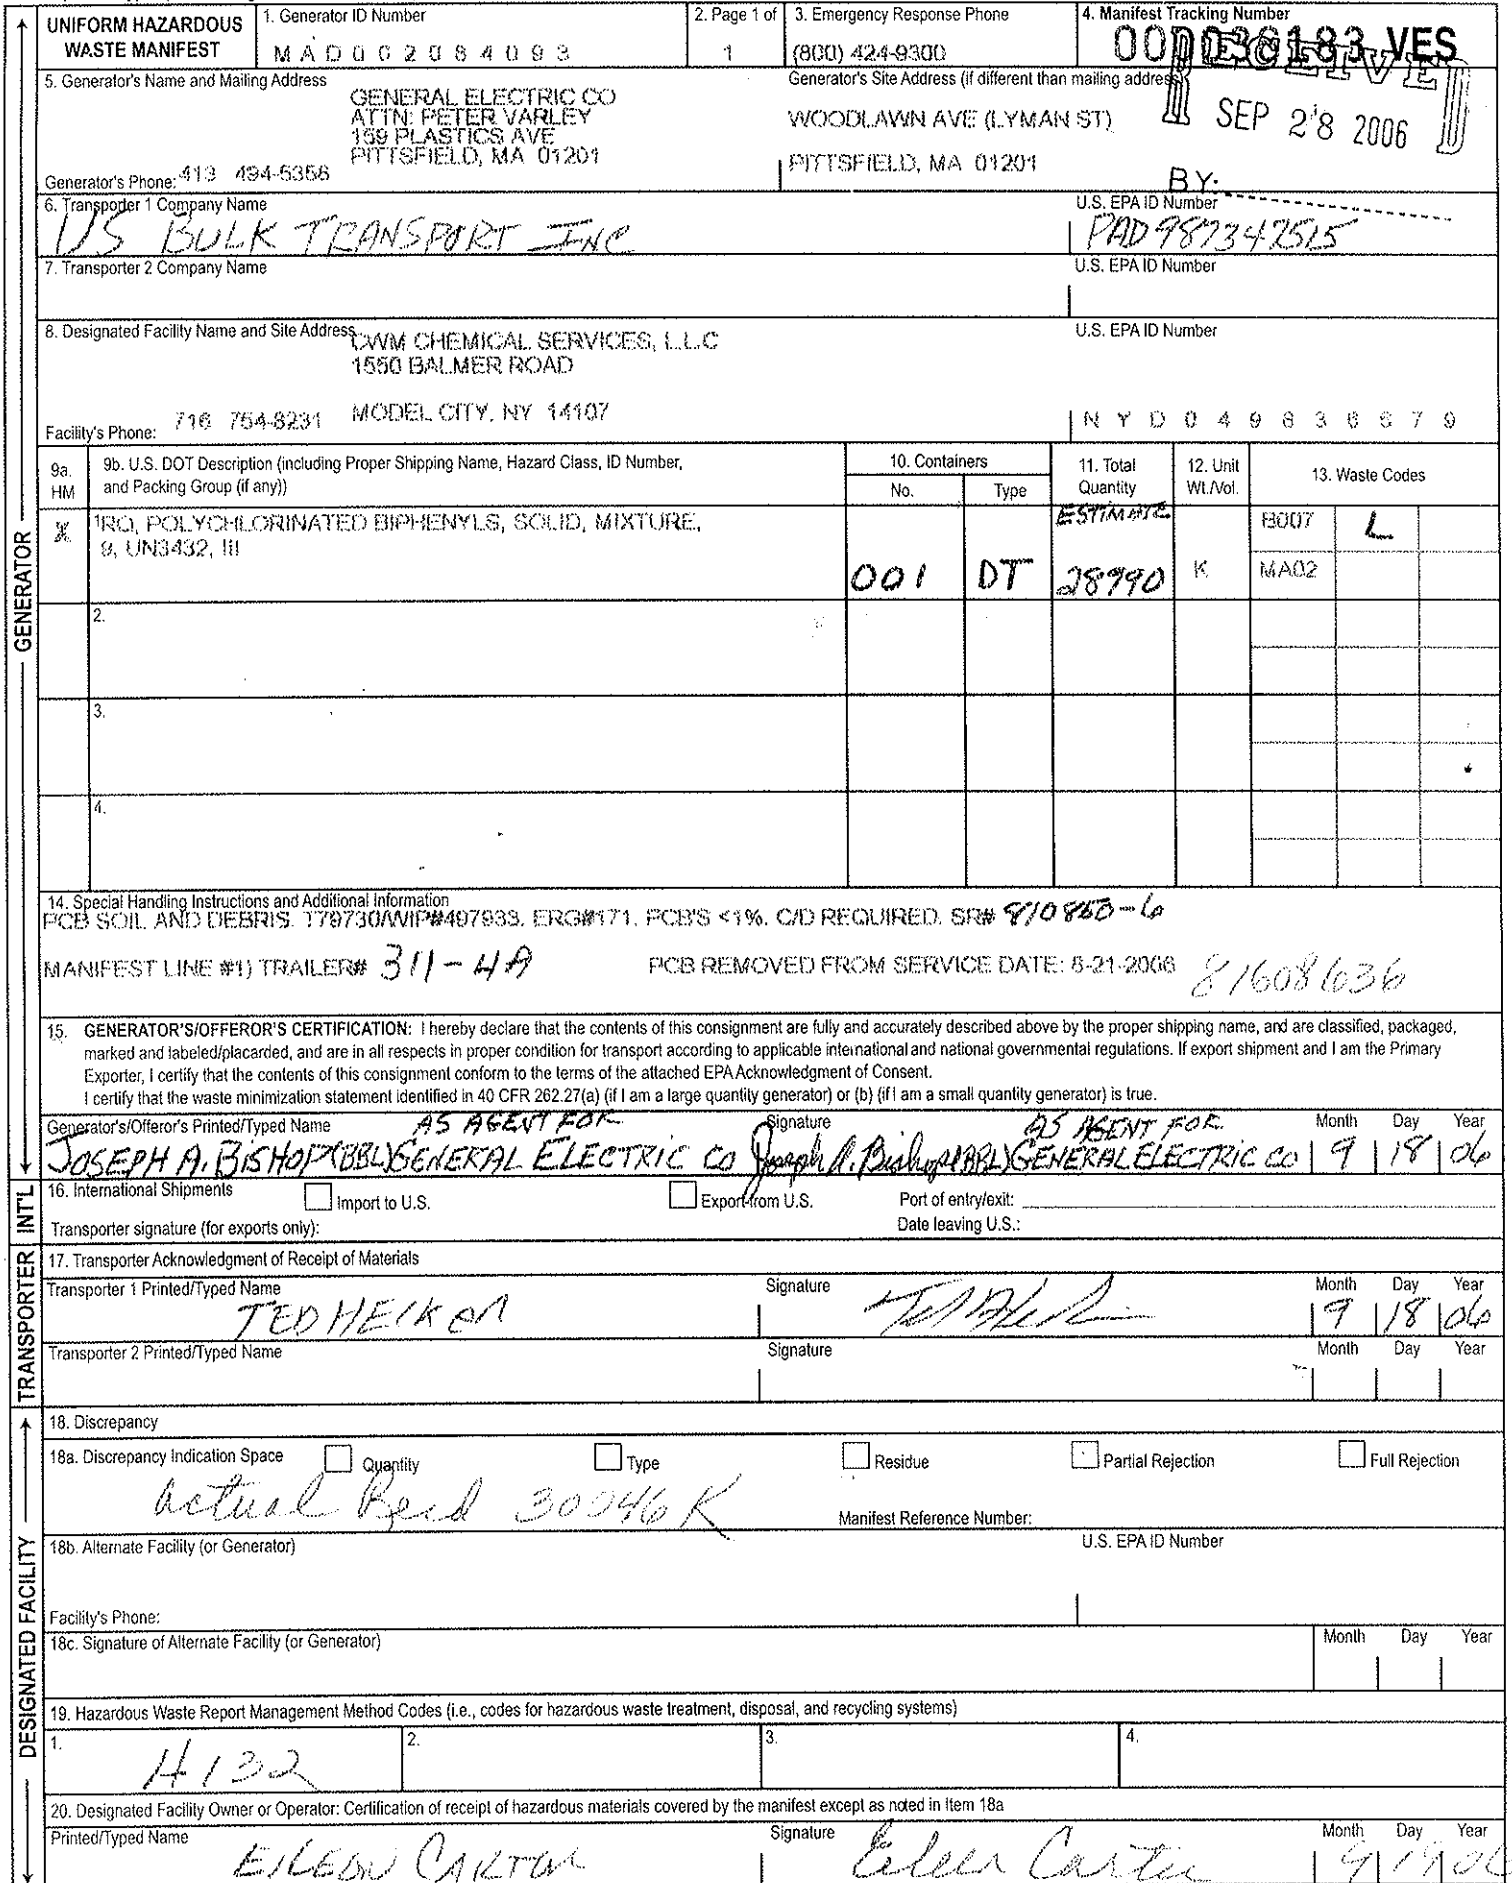 UNIFORM HAZARDOUS WASTE MANIFEST
1. Generator ID Number
MAD002084093
2. Page 1 of
1
3. Emergency Response Phone
(800) 424-9300
4. Manifest Tracking Number
VES
RECEIVED
SEP 28 2006
BY:
5. Generator's Name and Mailing Address
GENERAL ELECTRIC CO
ATTN: PETER VARLEY
159 PLASTICS AVE
PITTSFIELD, MA 01201
Generator's Phone: 413 494-5356
Generator's Site Address (if different than mailing address)
WOODLAWN AVE (LYMAN ST)
PITTSFIELD, MA 01201
6. Transporter 1 Company Name
US BULK TRANSPORT INC
U.S. EPA ID Number
PAD987347515
7. Transporter 2 Company Name
U.S. EPA ID Number
8. Designated Facility Name and Site Address
CWM CHEMICAL SERVICES, L.L.C
1550 BALMER ROAD
MODEL CITY, NY 14107
Facility's Phone: 716 754-8231
U.S. EPA ID Number
NYD049836679
9a. HM
9b. U.S. DOT Description (including Proper Shipping Name, Hazard Class, ID Number, and Packing Group (if any))
10. Containers
No.
Type
11. Total Quantity
12. Unit Wt./Vol.
13. Waste Codes
X
RQ, POLYCHLORINATED BIPHENYLS, SOLID, MIXTURE,
9, UN3432, III
001
DT
ESTIMATE
28990
K
B007
L
MA02
2.
3.
4.
14. Special Handling Instructions and Additional Information
PCB SOIL AND DEBRIS. T79730/WIP#497933. ERG#171. PCB'S <1%. C/D REQUIRED. SR# 810860-6
MANIFEST LINE #1) TRAILER# 311-4A
PCB REMOVED FROM SERVICE DATE: 8-21-2006
81608636
15. GENERATOR'S/OFFEROR'S CERTIFICATION: I hereby declare that the contents of this consignment are fully and accurately described above by the proper shipping name, and are classified, packaged,
marked and labeled/placarded, and are in all respects in proper condition for transport according to applicable international and national governmental regulations. If export shipment and I am the Primary
Exporter, I certify that the contents of this consignment conform to the terms of the attached EPA Acknowledgment of Consent.
I certify that the waste minimization statement identified in 40 CFR 262.27(a) (if I am a large quantity generator) or (b) (if I am a small quantity generator) is true.
Generator's/Offeror's Printed/Typed Name
AS AGENT FOR
JOSEPH A. BISHOP (BBL) GENERAL ELECTRIC CO
Signature
AS AGENT FOR
Joseph A. Bishop (BBL) GENERAL ELECTRIC CO
Month Day Year
9 18 06
16. International Shipments
Import to U.S.
Export from U.S.
Port of entry/exit:
Transporter signature (for exports only):
Date leaving U.S.:
17. Transporter Acknowledgment of Receipt of Materials
Transporter 1 Printed/Typed Name
TED
Signature
Month Day Year
9 18 06
Transporter 2 Printed/Typed Name
Signature
Month Day Year
18. Discrepancy
18a. Discrepancy Indication Space
Quantity
Type
Residue
Partial Rejection
Full Rejection
Actual Recd K
Manifest Reference Number:
18b. Alternate Facility (or Generator)
U.S. EPA ID Number
Facility's Phone:
18c. Signature of Alternate Facility (or Generator)
Month Day Year
19. Hazardous Waste Report Management Method Codes (i.e., codes for hazardous waste treatment, disposal, and recycling systems)
1.
H132
2.
3.
4.
20. Designated Facility Owner or Operator: Certification of receipt of hazardous materials covered by the manifest except as noted in Item 18a
Printed/Typed Name
EILEEN CARTER
Signature
Eileen Carter
Month Day Year
9 19 06
GENERATOR
INT'L
TRANSPORTER
DESIGNATED FACILITY